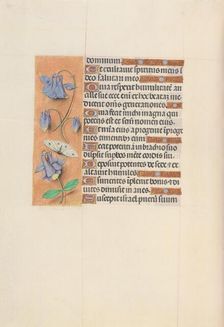 dominum
Et exultavit spiritus meus i
deo salutari meo
Quia respexit humilitatem an
cille sue ecce enim ex hoc beatam me
dicent omnes generationes
Quia fecit michi magna qui
potens est et sanctum nomen eius
Et misericordia eius a progenie i progeni
es timentibus eum
Fecit potentiam in brachio suo
dispersit superbos mente cordis sui
Deposuit potentes de sede et ex
altavit humiles
Esurientes implevit bonis et di
vites dimisit inanes
Suscepit israel puerum suum